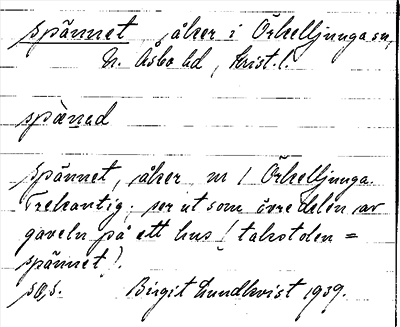 spännet, åker i Örkelljunga sn,
N. Åsbo hd, Krist. l.
spänad
Spännet, åker m / Örkelljunga.
Trekantig; ser ut som övre delen av
gaveln på ett hus (takstolen =
spännet).
sös. Birgit Lundkvist 1939.